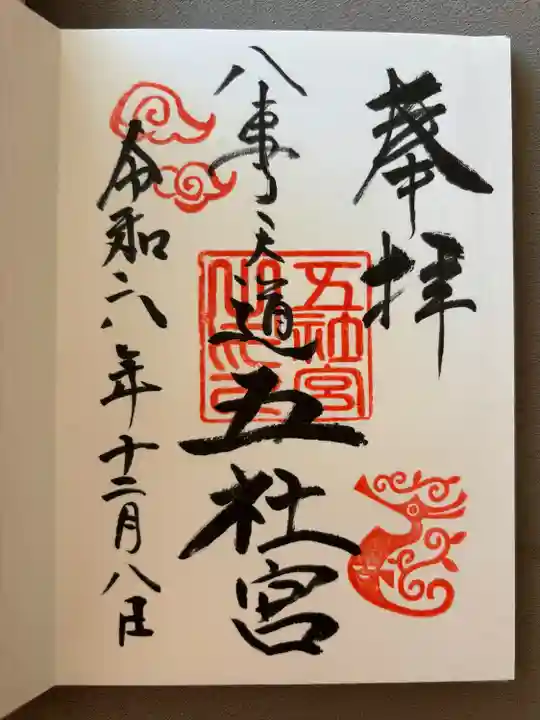 奉拝
八事天道五社宮
五社宮
令和六年十二月八日